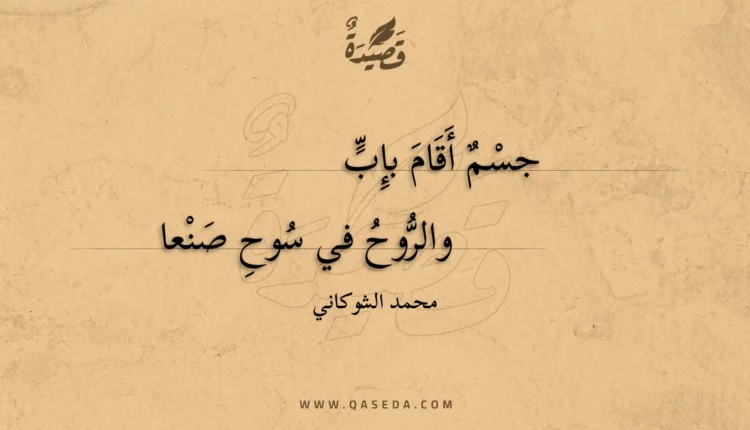 قَصِيدَةٌ
جسْمٌ أَقَامَ بإِبٍّ
والرُّوحُ في سُوحِ صَنْعا
محمد الشوكاني
WWW.QASEDA.COM